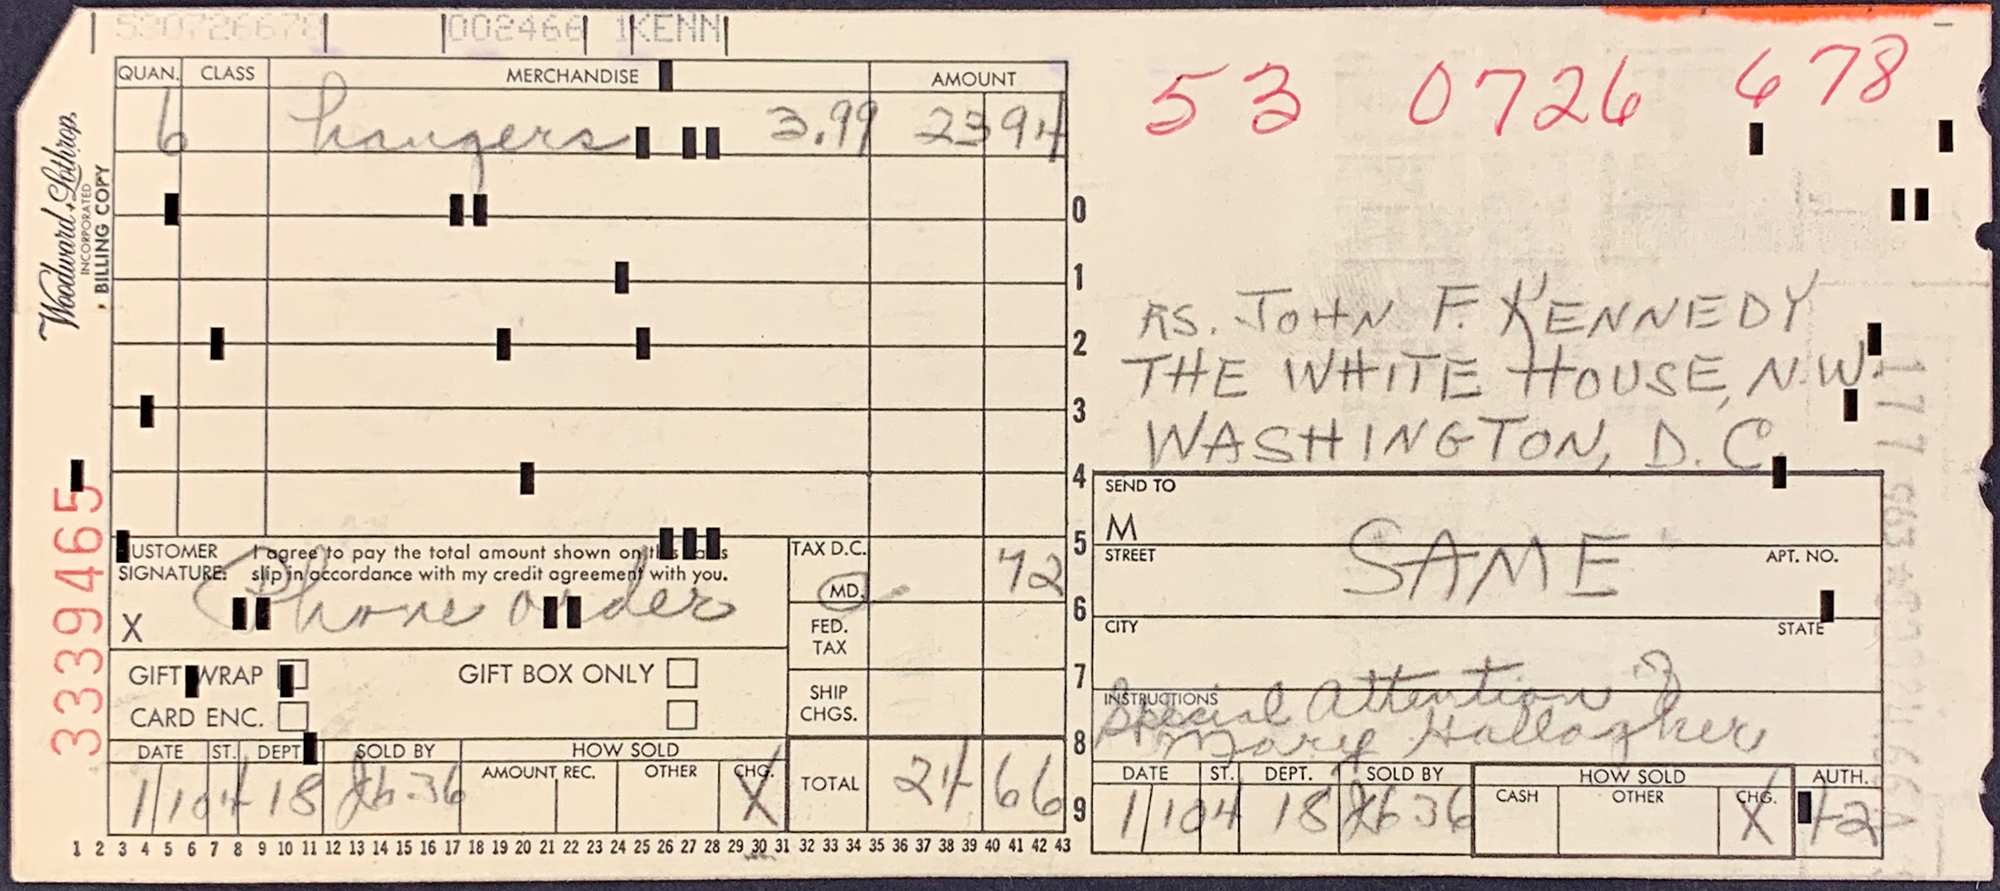 530726678 002466 1KENN
QUAN. CLASS MERCHANDISE AMOUNT
6 hangers 3.99 23 94
53 0726 678
Woodward & Lothrop.
INCORPORATED
BILLING COPY
3339465
0
1
2
3
4
5
6
7
8
9
RS. JOHN F. KENNEDY
THE WHITE HOUSE, N.W.
WASHINGTON, D.C.
CUSTOMER SIGNATURE:
I agree to pay the total amount shown on this sales
slip in accordance with my credit agreement with you.
X Phone order
TAX D.C.
MD. 72
FED. TAX
SHIP CHGS.
GIFT WRAP GIFT BOX ONLY
CARD ENC.
DATE ST. DEPT SOLD BY HOW SOLD
AMOUNT REC. OTHER CHG.
1/10 4 18 36 X
TOTAL 24 66
1 2 3 4 5 6 7 8 9 10 11 12 13 14 15 16 17 18 19 20 21 22 23 24 25 26 27 28 29 30 31 32 33 34 35 36 37 38 39 40 41 42 43
SEND TO
M SAME
STREET APT. NO.
CITY STATE
INSTRUCTIONS
Special Attention of
Mary Gallagher
DATE ST. DEPT. SOLD BY HOW SOLD AUTH.
CASH OTHER CHG.
1/10 4 18 36 X